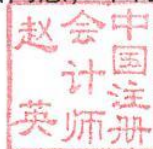 中国注册
会计师
赵英